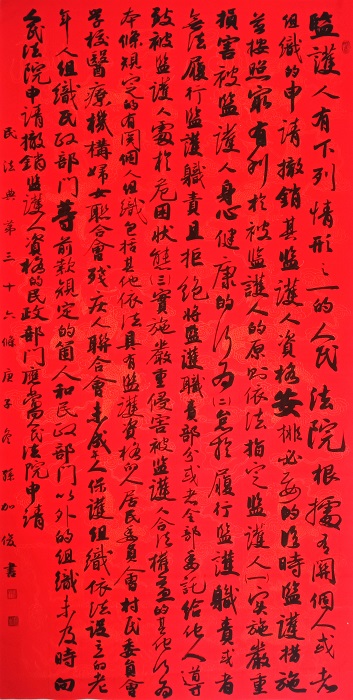 監護人有下列情形之一的人民法院根據有關個人或者
組織的申請撤銷其監護人資格安排必要的臨時監護措施
並按照最有利於被監護人的原則依法指定監護人(一)實施嚴重
損害被監護人身心健康的行為(二)怠於履行監護職責或者
無法履行監護職責且拒絕將監護職責部分或者全部委託給他人導
致被監護人處於危困狀態(三)實施嚴重侵害被監護人合法權益的其他行為
本條規定的有關個人組織包括其他依法具有監護資格的人居民委員會村民委員會
學校醫療機構婦女聯合會殘疾人聯合會未成年人保護組織依法設立的老
年人組織民政部門等前款規定的箇人和民政部門以外的組織未及時向
人民法院申請撤銷監護人資格的民政部門應當人民法院申請
民法典第三十六條庚子冬孫加俊書